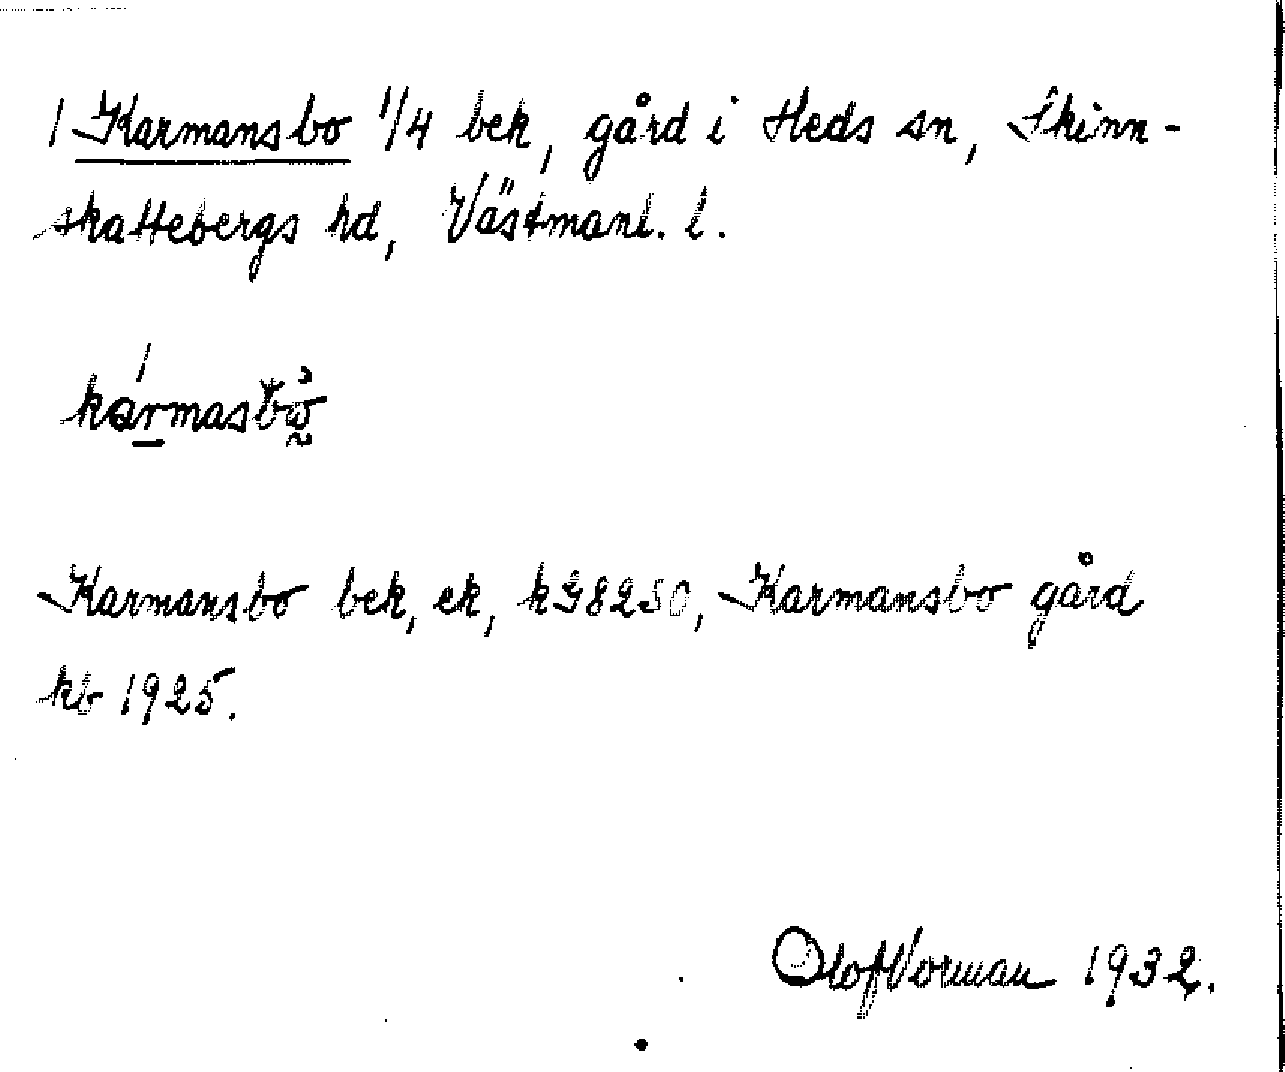 1 Karmansbo 1/4 bek, gård i Heds sn, Skinn-
skattebergs hd, Västmanl. l.
kármasbå̀
Karmansbo bek, ek, k98250, Karmansbo gård
kb 1925.
Olof Vorman 1932.